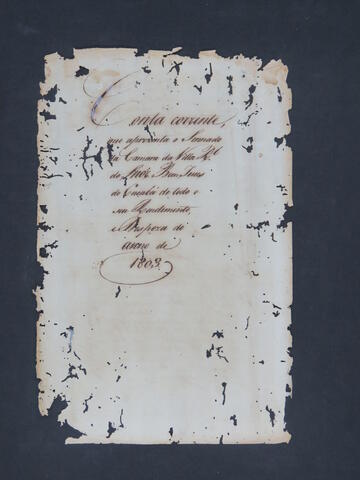 Conta corrente,
que aprezenta o Senado
da Camara da Villa R.l
do Snõr Bom Jesus
de Cuyabá de todo o
seu Rendimento,
e Despeza do
anno de
1803